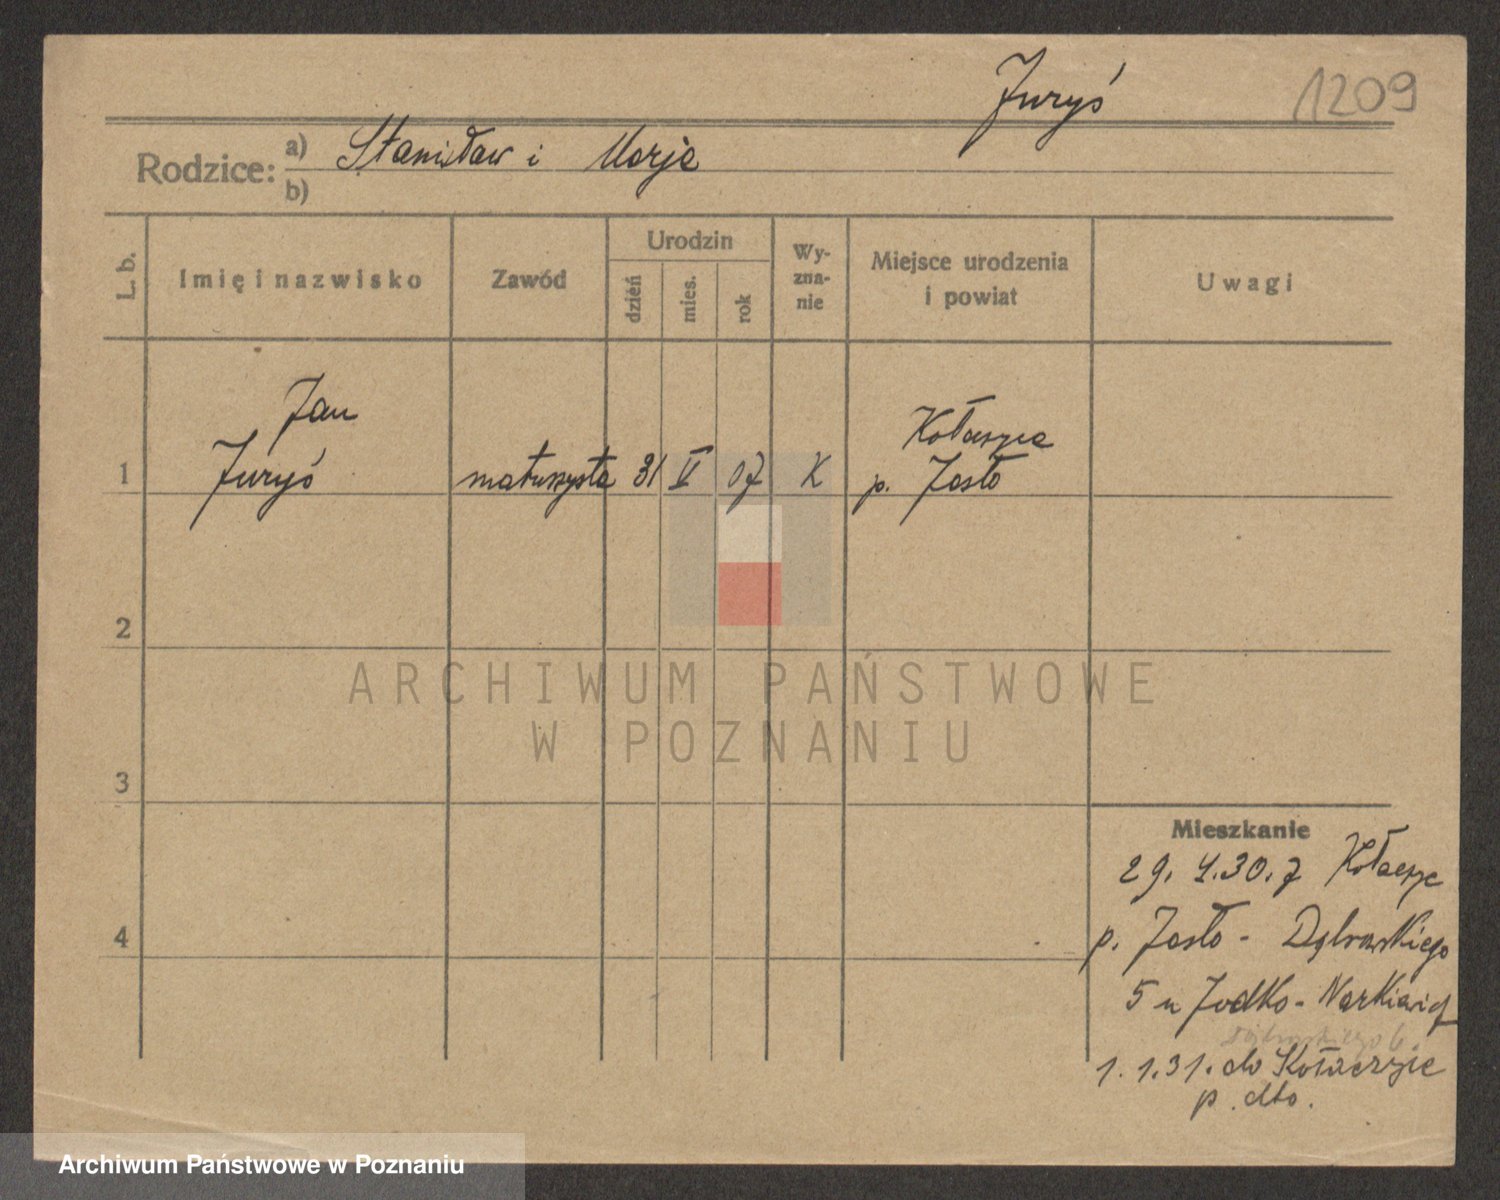 Juryś 1209
Rodzice: a) Stanisław i Marja
b)
L. b. Imię i nazwisko Zawód Urodzin dzień mies. rok Wy-zna-nie Miejsce urodzenia i powiat Uwagi
Jan Kołaczyce
1 Juryś maturzysta 31 V 07 K p. Jasło
2
ARCHIWUM PAŃSTWOWE
W POZNANIU
3
Mieszkanie
29. 4.30. z Kołaczyc
4
p. Jasło - Dąbrowskiego
5 u Jodko-Narkiewicz
1.1.31. do Kołaczyce
p. dto.
Archiwum Państwowe w Poznaniu